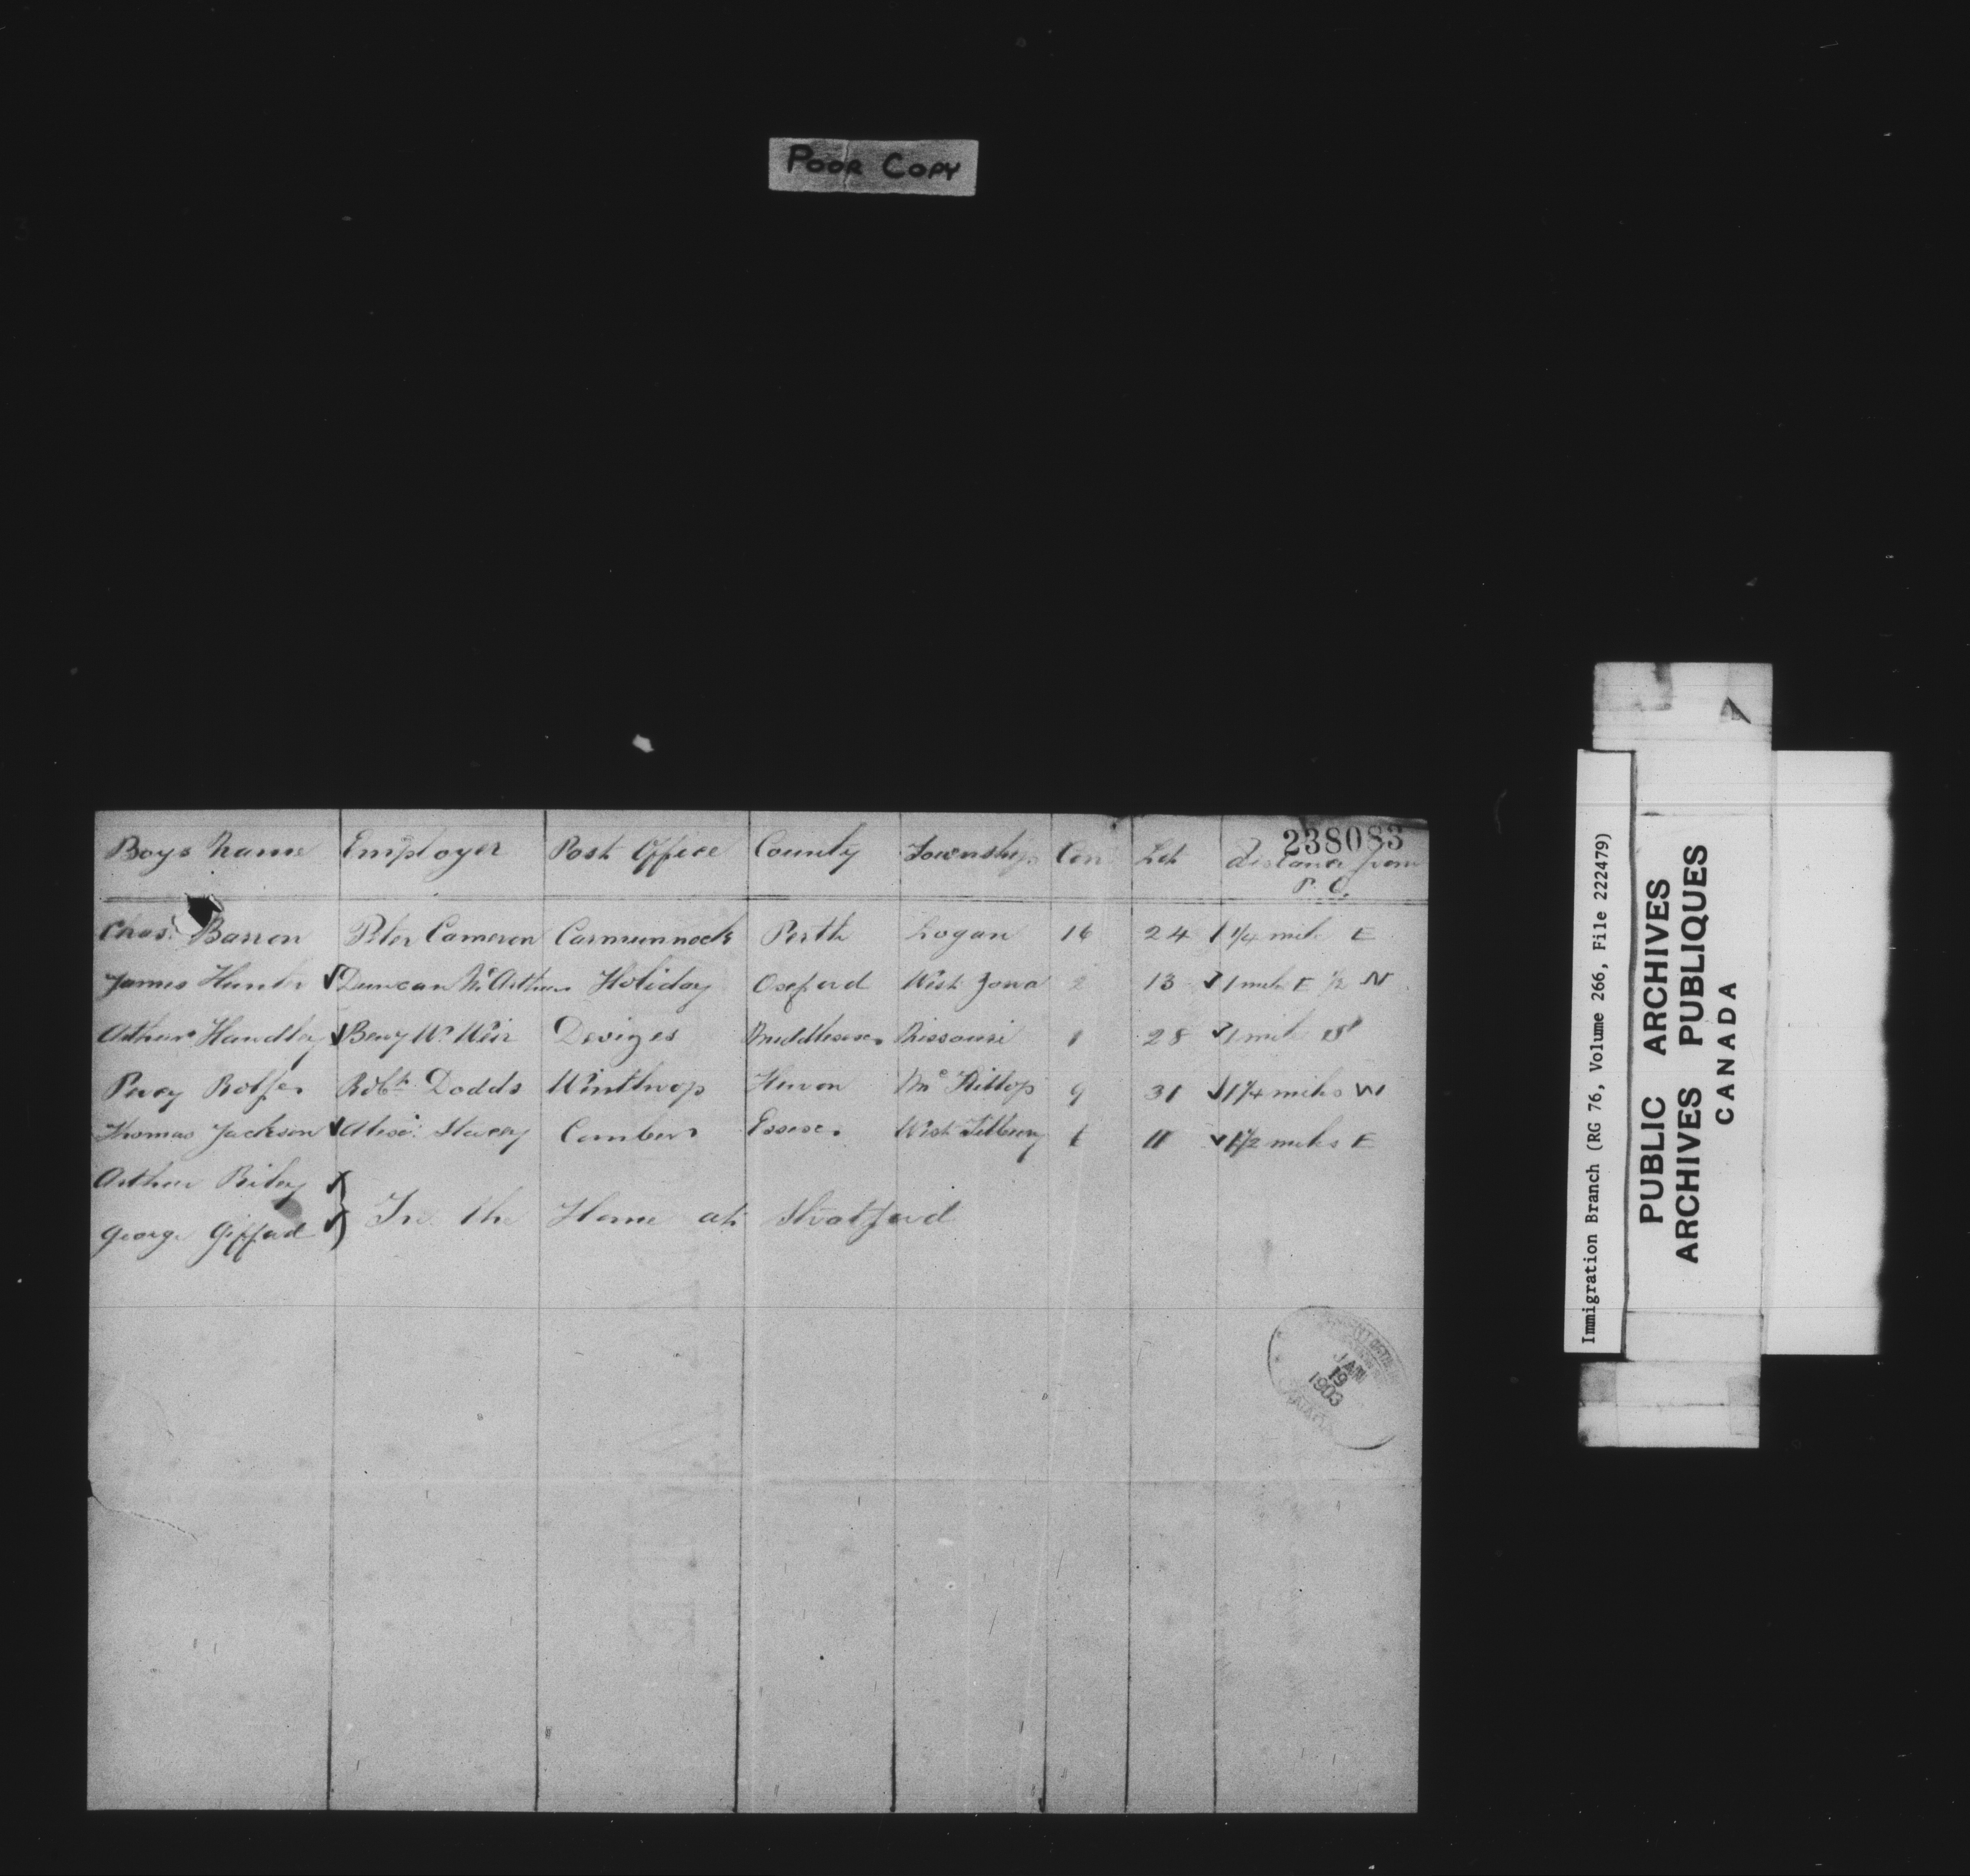 POOR COPY
238083
Boys Name Employer Post Office County Township Con Lot distance from
P. O.
Chas. Barron Peter Cameron Carmunnock Perth Logan 16 24 1 1/4 mile E
James Hunter Duncan McArthur Holiday Oxford West Zorra 2 13 1 mile E 1/2 N
Arthur Handley Benj W. Weir Devizes Middlesex Nissouri 1 28 1 mile
Percy Rolfe Robt. Dodds Winthrop Huron McKillop 9 31 1 1/4 miles W
Thomas Jackson Stacey Comber Essex West Tilbury 11 1/2 miles E
Arthur Riley
In the Home at Stratford
George Gifford
JAN
19
1903
Immigration Branch (RG 76, Volume 266, File 222479)
PUBLIC ARCHIVES
ARCHIVES PUBLIQUES
CANADA